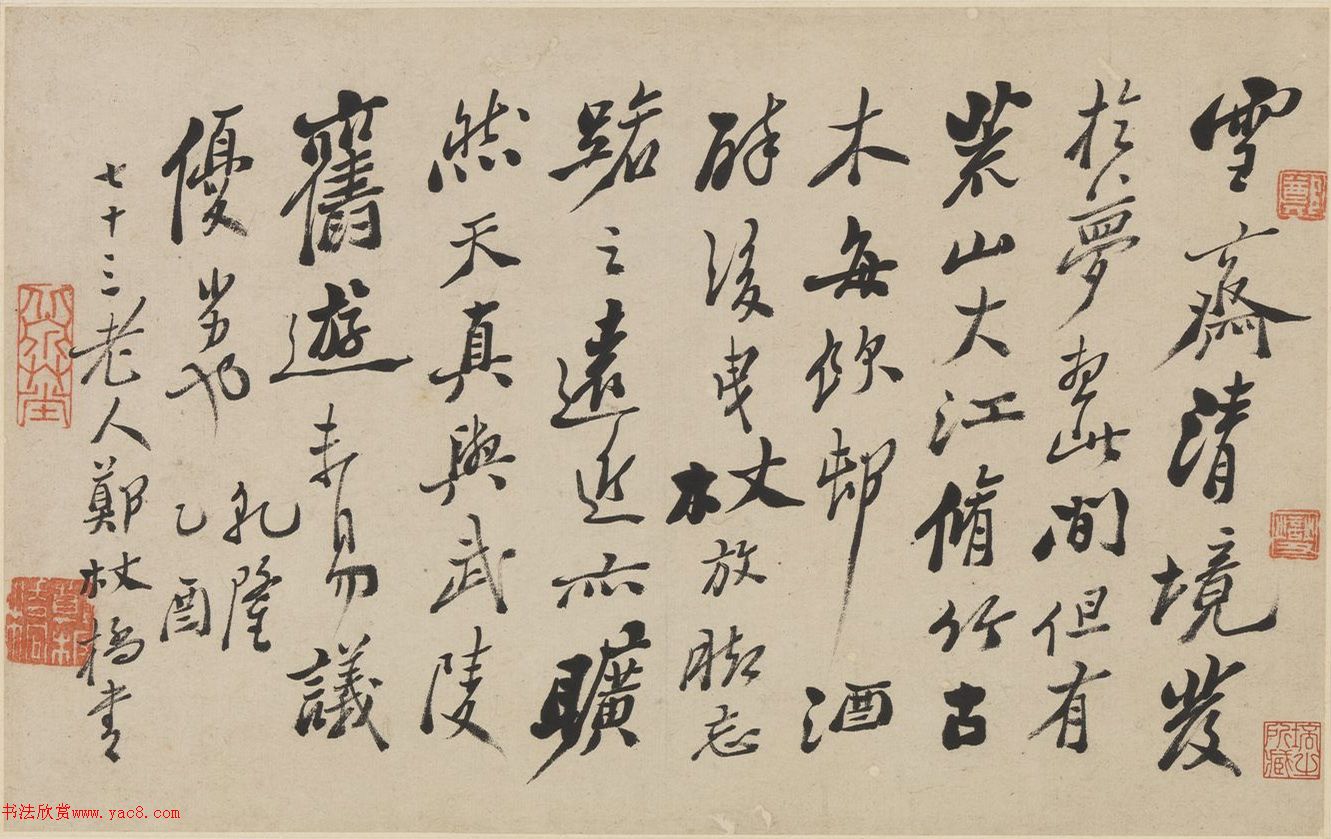 雪齋清境發
於夢想此間但有
荒山大江脩竹古
木每飲邨酒
醉後曳杖放脚忘
路之遠近亦曠
然天真與武陵
舊遊未易議
優劣也
乾隆
乙酉
七十三老人鄭板橋書
书法欣赏www.yac8.com